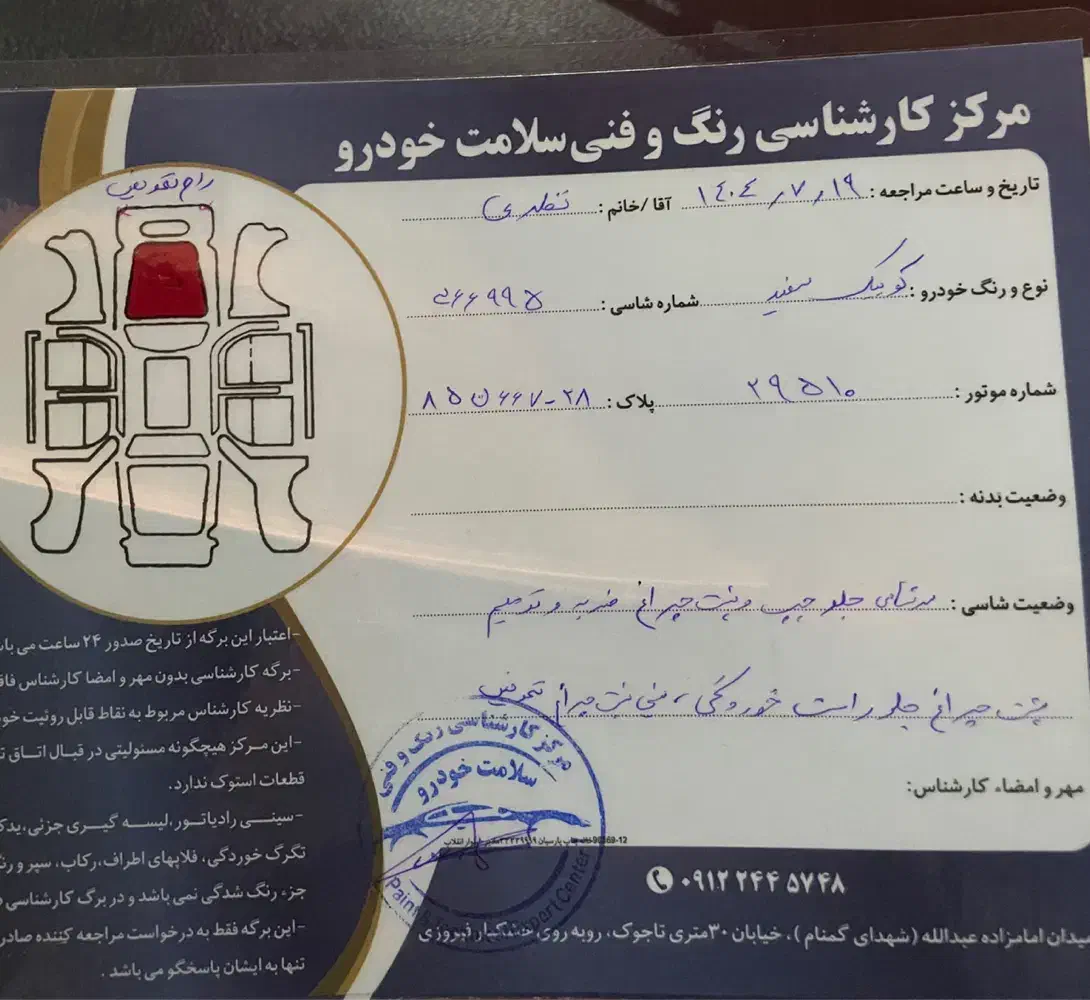 مرکز کارشناسی رنگ و فنی سلامت خودرو
تاریخ و ساعت مراجعه: ۱۴۰۴/۷/۱۹ آقا/خانم:
نوع و رنگ خودرو: کوییک سفید شماره شاسی: ۵۶۶۹۹۵
شماره موتور: ۲۹۵۱۰ پلاک: ۲۸-۶۶۷ن۸۵
وضعیت بدنه:
وضعیت شاسی: سرشاسی جلو چپ و پشت چراغ ضربه و ترمیم
پشت چراغ جلو راست خوردگی، سینی پشت چراغ تعویض
مهر و امضاء کارشناس:
رام تعویض
-اعتبار این برگه از تاریخ صدور ۲۴ ساعت می
-برگه کارشناسی بدون مهر و امضا کارشناس
-نظریه کارشناس مربوط به نقاط قابل روئیت
-این مرکز هیچگونه مسئولیتی در قبال اتاق
قطعات استوک ندارد.
-سینی رادیاتور، لیسه گیری جزئی،
تگرگ خوردگی، قلابهای اطراف، رکاب، سپر و
جزء رنگ شدگی نمی باشد و در برگ کارشناسی
-این برگه فقط به درخواست مراجعه کننده
تنها به ایشان پاسخگو می باشد.
مرکز کارشناسی رنگ و فنی
سلامت خودرو
Expert Center
۰۹۱۲ ۲۴۴ ۵۷۴۸
میدان امامزاده عبدالله (شهدای گمنام)، خیابان ۳۰متری تاجوک، روبه روی خشکبار فیروزی